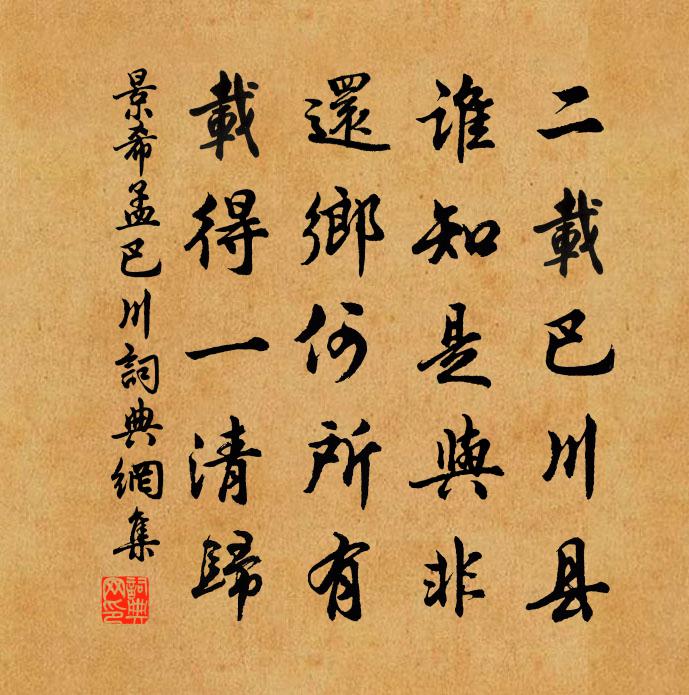 二載巴川县
誰知是與非
還鄉何所有
載得一清歸
景希孟巴川詞典網集
詞典网印